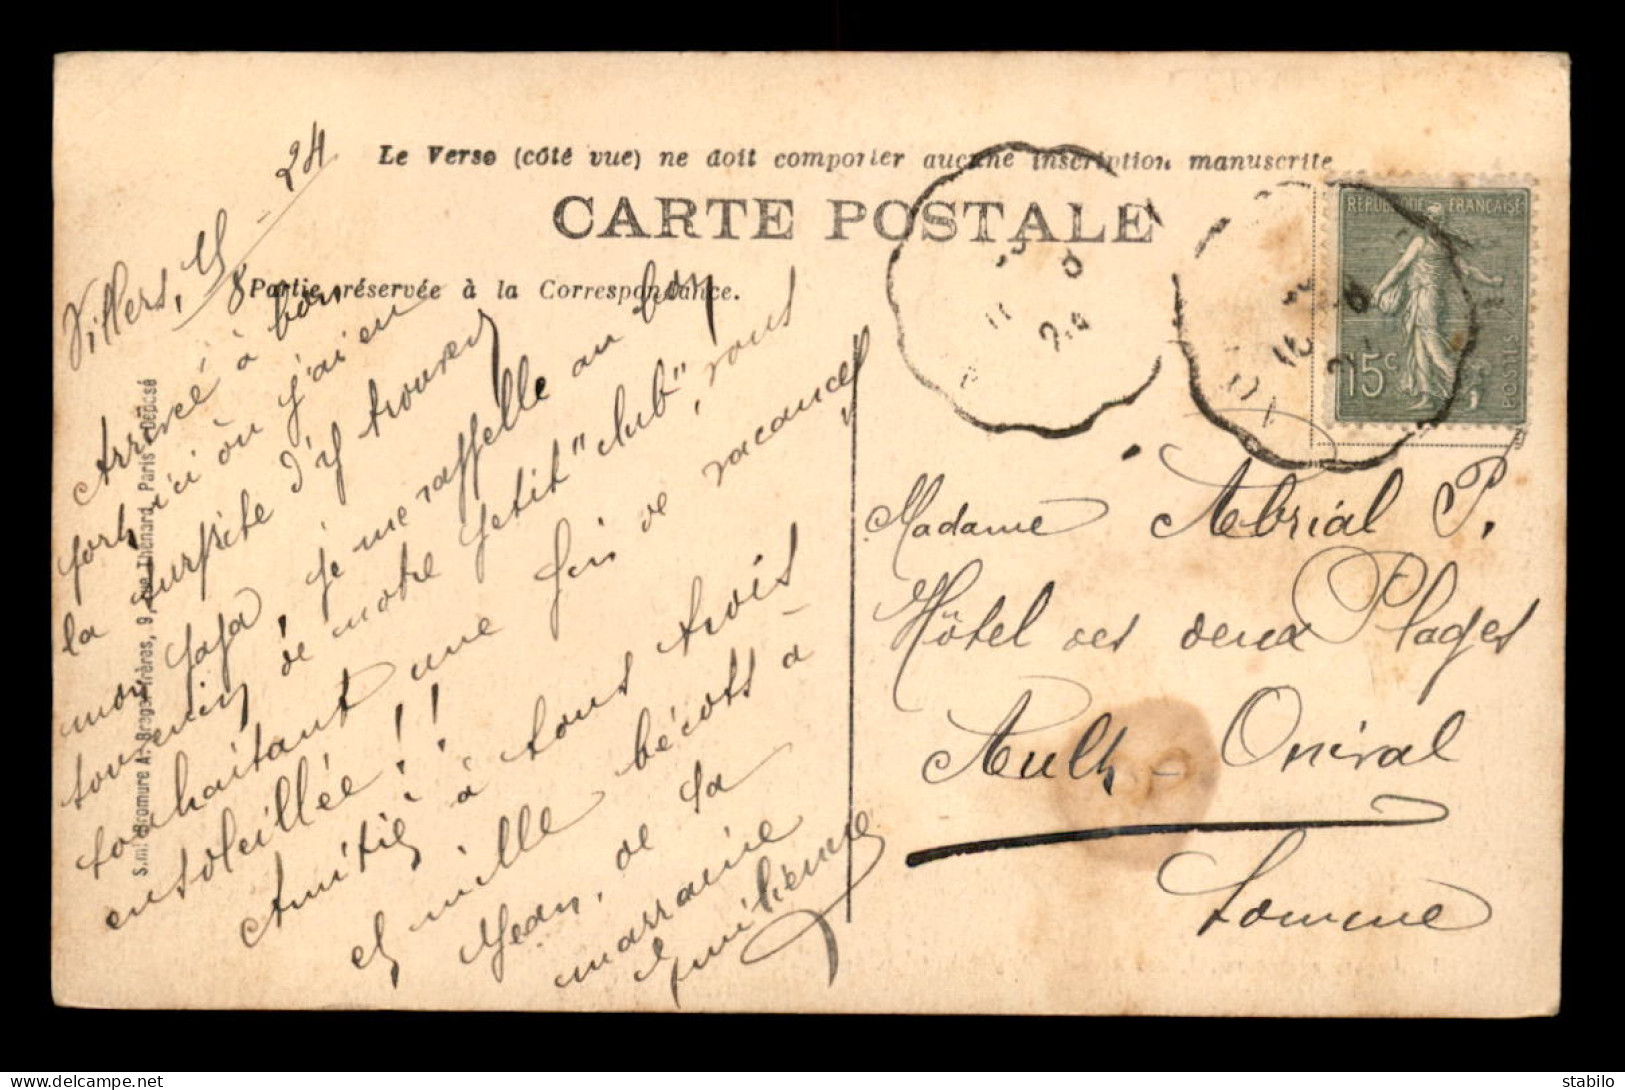 Le Verso (côté vue) ne doit comporter aucune inscription manuscrite
CARTE POSTALE
Partie réservée à la Correspondance.
Villers, 15/8 - 24
Arrivé à bon
port ici où j'ai eu
la surprise d'y trouver
mon papa, je me rappelle au bon
souvenir de notre petit "club", vous
souhaitant une fin de vacances
ensoleillée!!
Amitiés à tous trois
et mille bécots à
Jean, de sa
marraine
Emilienne
Madame Abrial P.
Hôtel des deux Plages
Ault - Onival
Somme
RÉPUBLIQUE FRANÇAISE
15c
POSTES
24
S.m. Bromure A. Breger frères, 9, rue Thénard, Paris - Déposé
stabilo